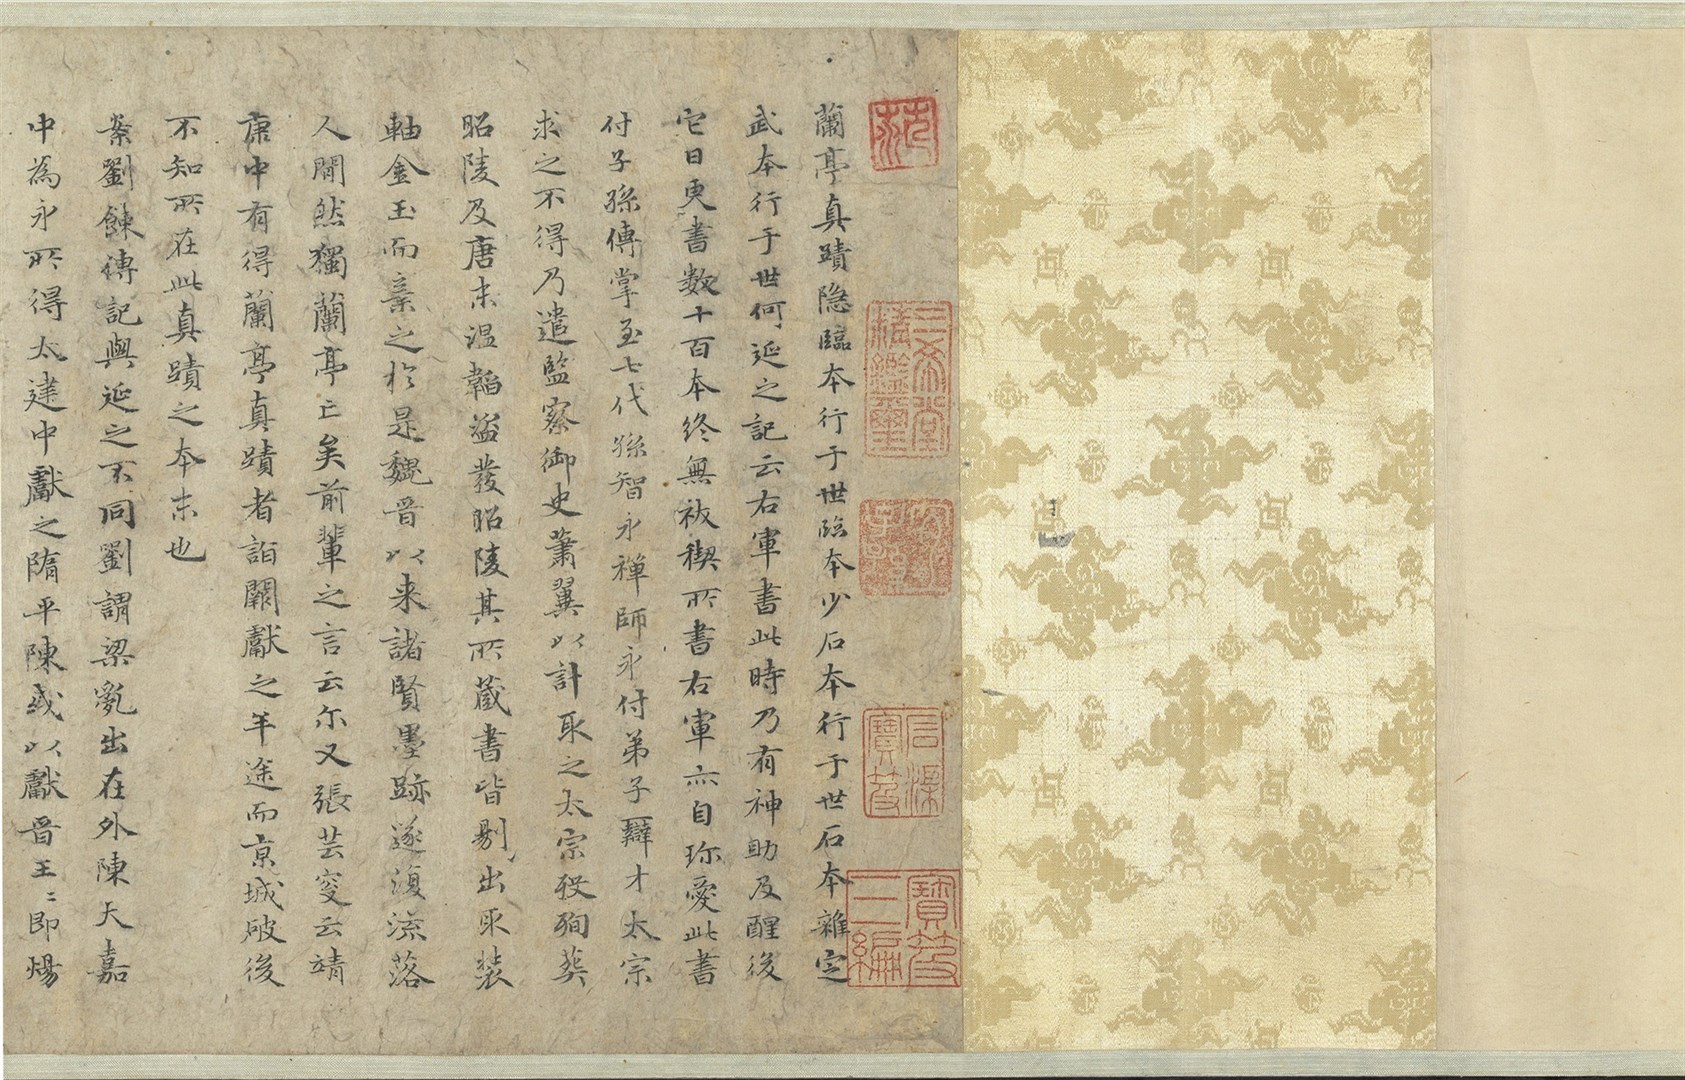 蘭亭真蹟隐臨本行于世臨本少石本行于世石本雜定
武本行于世何延之記云右軍書此時乃有神助及醒後
它日更書數十百本終無祓禊所書右軍亦自珎愛此書
付子孫傳掌至七代孫智永禪師永付弟子辯才太宗
求之不得乃遣監察御史蕭翼以計取之太宗歿殉葬
昭陵及唐末温韜盜發昭陵其所蔵書皆剔出取装
軸金玉而棄之於是魏晋以来諸賢墨跡遂復流落
人間然獨蘭亭亡矣前輩之言云尔又張芸叟云靖
康中有得蘭亭真蹟者詣闕獻之半途而京城破後
不知所在此真蹟之本末也
案劉餗傳記與延之不同劉謂梁亂出在外陳天嘉
中為永所得太建中獻之隋平陳或以獻晋王二即煬
三希堂精鑑璽
宜子孫
石渠寶笈
寶笈三編